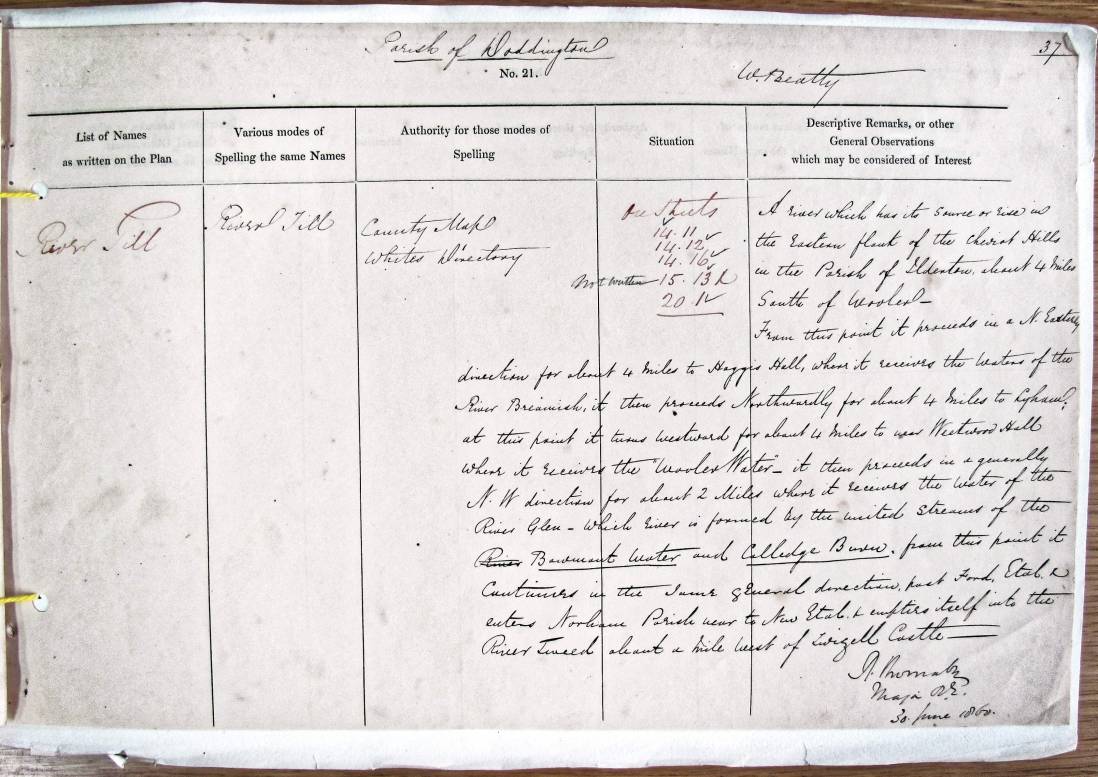 37
Parish of Doddington
No. 21.
W. Beatty
List of Names
as written on the Plan
Various modes of
Spelling the same Names
Authority for those modes of
Spelling
Situation
Descriptive Remarks, or other
General Observations
which may be considered of Interest
River Till
River Till
County Map
Whites Directory
On Sheets
14.11
14.12
14.16
Not written 15.13
20.1
A river which has its source or rise in
the Eastern flank of the Cheviot Hills
in the Parish of Ilderton, about 4 Miles
South of Wooler—
From this point it proceeds in a N. Easterly
direction for about 4 Miles to Haggis Hall, where it receives the waters of the
River Breamish, it then proceeds Northwardly for about 4 Miles to Lyham;
at this point it turns westward for about 4 Miles to near Weetwood Hall
where it receives the "Wooler Water"— it then proceeds in a generally
N.W direction for about 2 Miles where it receives the water of the
River Glen— which river is formed by the united streams of the
River Bowmont Water and Colledge Burn, from this point it
Continues in the same general direction, past Ford, Etal. &
enters Norham Parish near to New Etal. & empties itself into the
River Tweed about a mile west of Twizell Castle—
Major R.E.
30 June 1860.